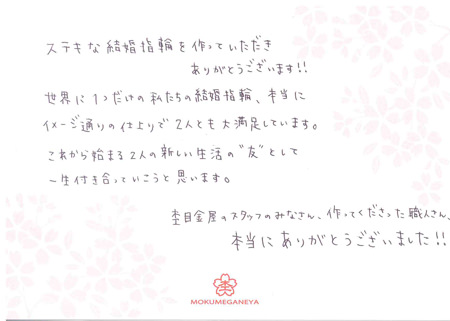 ステキな結婚指輪を作っていただき
ありがとうございます!!
世界に1つだけの私たちの結婚指輪、本当に
イメージ通りの仕上りで2人とも大満足しています。
これから始まる2人の新しい生活の"友"として
一生付き合っていこうと思います。
杢目金屋のスタッフのみなさん、作ってくださった職人さん、
本当にありがとうございました!!
MOKUMEGANEYA